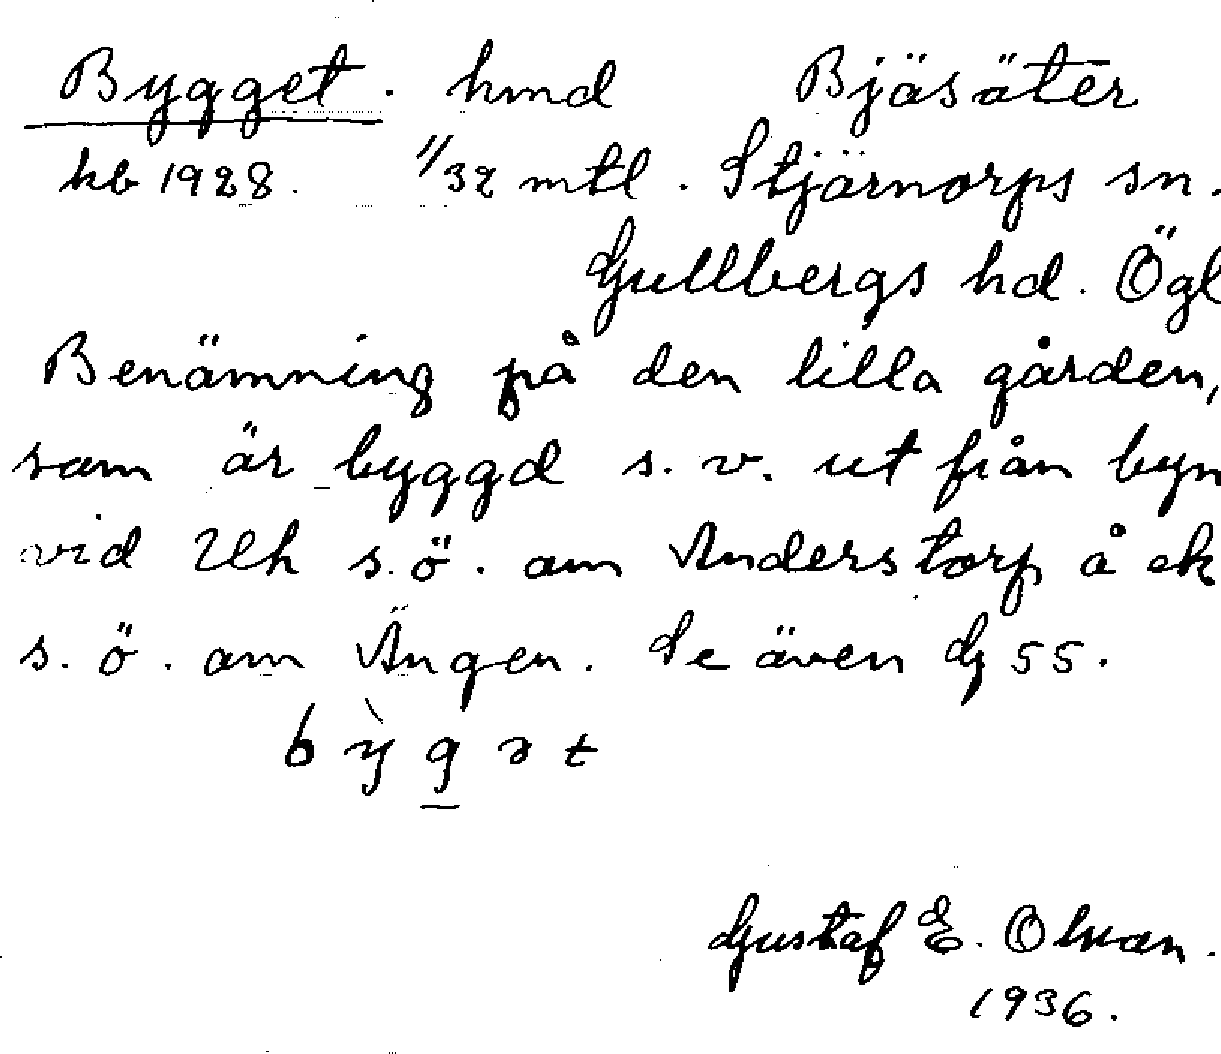 Bygget. hmd Bjäsäter
kb 1928. 1/32 mtl. Stjärnorps sn.
Gullbergs hd. Ögl
Benämning på den lilla gården,
som är byggd s.v. ut från byn
vid Uh s.ö. om Anderstorp å ek
s.ö. om Ängen. Se även G 55.
bỳgət
Gustaf E. Olson.
1936.